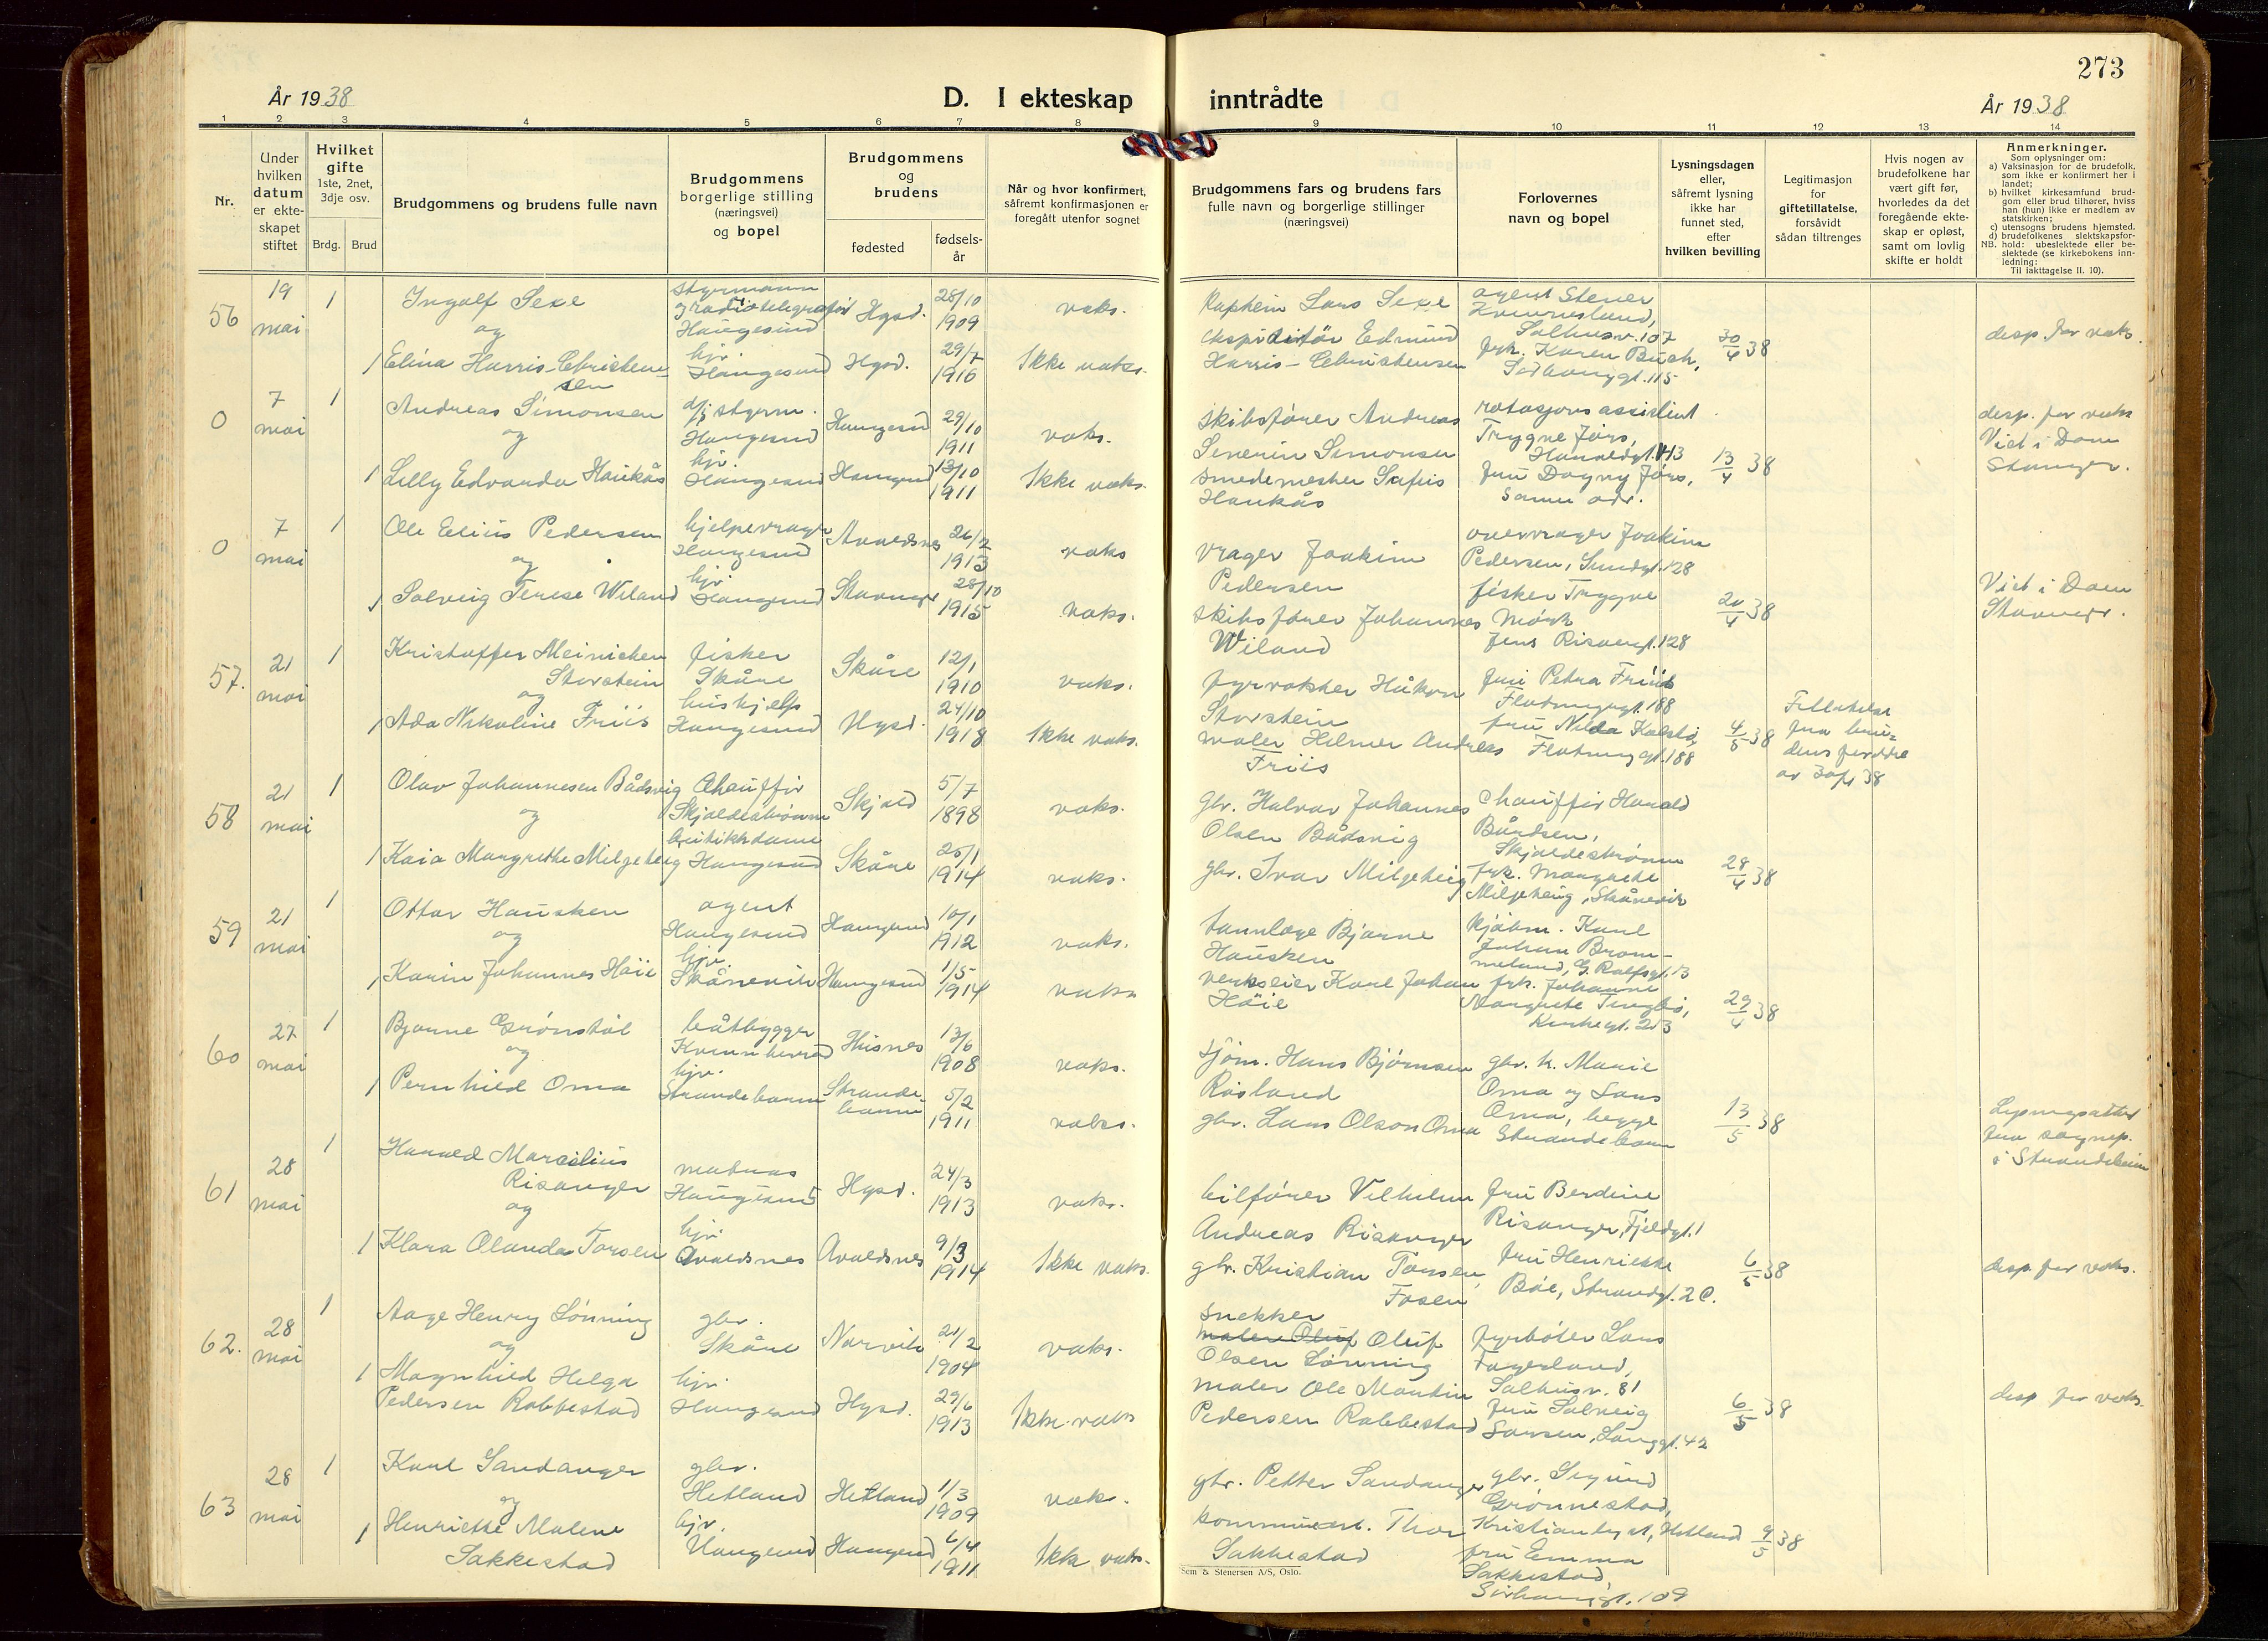 273
År 1938
D. I ekteskap inntrådte
År 1938
1 2 3 4 5 6 7 8 9 10 11 12 13 14
Nr.
Under hvilken datum er ekteskapet stiftet
Hvilket gifte
1ste, 2net, 3dje osv.
Brdg. Brud
Brudgommens og brudens fulle navn
Brudgommens borgerlige stilling (næringsvei) og bopel
Brudgommens og brudens
fødested
fødselsår
Når og hvor konfirmert, såfremt konfirmasjonen er foregått utenfor sognet
Brudgommens fars og brudens fars fulle navn og borgerlige stillinger (næringsvei)
Forlovernes navn og bopel
Lysningsdagen eller, såfremt lysning ikke har funnet sted, efter hvilken bevilling
Legitimasjon for giftetillatelse, forsåvidt sådan tiltrenges
Hvis nogen av brudefolkene har vært gift før, hvorledes da det foregående ekteskap er opløst, samt om lovlig skifte er holdt
Anmerkninger.
Som oplysninger om:
a) Vaksinasjon for de brudefolk, som ikke er konfirmert her i landet;
b) hvilket kirkesamfund brudgom eller brud tilhører, hviss han (hun) ikke er medlem av statskirken;
c) utensogns brudens hjemsted.
d) brudefolkenes slektskapsforhold: ubeslektede eller beslektede (se kirkebokens innledning:
NB. Til iakttagelse II. 10).
56 19 mai 1 Ingolf Sexe styrmann og radiotelegrafist Haugesund Hgsd. 28/10 1909 vaks. Lars Sexe agent Stener Kvinnesland, Salhusv. 107
og
1 Elina Harris-Christensen hjv. Haugesund Hgsd. 29/7 1916 Ikke vaks. ekspeditør Edmund Harris-Christensen frk. Karen Buch, 30/4 38 desp. for vaks.
0 7 mai 1 Andreas Simonsen styrm. Haugesund Haugesund 29/10 1911 vaks. skibsfører Andreas Severin Simonsen rotasjonsassistent Trygve Jørs, desp. for vaks Viet i Dom Stavanger.
og
1 Lilly Edvarda Haukås hjv. Haugesund Haugesund 13/10 1911 Ikke vaks. smedemester Haukås fru Dagny Jørs, samme adr. 13/4 38
0 7 mai 1 Ole Elius Pedersen hjelpevrager Haugesund Avaldsnes 26/2 1913 vaks vrager Joakim Pedersen overvrager Joakim Pedersen, Sundgt. 128
og
1 Solveig Terese Wiland hjv. Haugesund Stavanger 28/10 1915 vaks. skibsfører Johannes Wiland fisker Trygve Mörk Jens Risøengt. 128 20/4 38 Viet i Dom Stavanger.
57. 21 mai 1 Kristoffer Meinichen Storstein fisker Skåre Skåre 12/1 1910 vaks. fyrvokter Håkon Storstein fru Petra Friis Flotmyrgt. 188
og
1 Ada Nikoline Friis hushjelp Haugesund Hgsd. 24/10 1918 Ikke vaks. maler Hilmer Andreas Friis fru Nilda Kalstø, Flotmyrgt. 188 4/5 38 Tillatelse fra brudens foreldre av 30/4 38
58 21 mai 1 Olav Johannesen Bådsvig Chauffør Skjoldestrømm Skjold 5/7 1898 vaks. gbr. Halvor Johannes Olsen Bådsvig Chauffør Harald Bårdsen, Skjoldestrømm
og
1 Kaia Margrethe Milgeteig butikkdame Haugesund Skåre 25/1 1914 vaks. gbr. Ivar Milgeteig frk. Margrete Milgeteig, Skånevik 29/4 38
59 21 mai 1 Ottar Hausken agent Haugesund Haugesund 10/1 1912 vaks. tannlæge Bjarne Hausken kjøbm. Karl Johan Brommeland, G. Rolfsgt. 13
og
1 Karin Johannes Høie hjv. Skånevik Haugesund 1/5 1914 vaks verkseier Karl Johan Høie frk. Johanne Margrete Kirkegt. 213 29/4 38
60 27 mai 1 Bjarne Grønstøl båtbygger Kvinnherred Husnes 13/6 1908 vaks. sjøm. Hans Bjørnsen Røsland gbr. k. Marie Oma og Lars Oma, begge Strandebarm
og
1 Pernhild Oma hjv. Strandebarm Strandebarm 5/2 1911 vaks. gbr. Lars Olson Oma 13/5 38 Lysningsattest fra sognep. i Strandebarm
61 28 mai 1 Harald Marcelius Risanger matros Haugesund Hgsd. 24/3 1913 vaks. bilfører Vilhelm Andreas Risanger fru Berdine Risanger, Fjeldgt. 1
og
1 Klara Olanda Torsen hjv. Avaldsnes Avaldsnes 9/3 1914 Ikke vaks. gbr. Kristian Torsen, Fosen fru Henrikke Bøe, Strandgt. 2 C. 6/5 38 desp. for vaks.
62. 28 mai 1 Aage Henry Lønning gbr. Skåre Narvik 21/2 1904 vaks. snekker Oluf Olsen Lønning fyrbøter Lars Fagerland, Salhusv. 81
og
1 Magnhild Helga Pedersen Robbestad hjv. Haugesund Hgsd. 29/6 1913 Ikke vaks maler Ole Martin Pedersen Robbestad fru Solveig Larsen, Langgt. 42 6/5 38 desp. for vaks.
63 28 mai 1 Karl Sandanger gbr. Hetland Hetland 1/3 1909 vaks. gbr. Petter Sandanger gbr. Sigurd Grønnestad, Kristianlyst, Hetland
og
1 Henriette Malene Sakkestad hjv. Haugesund Haugesund 6/4 1911 Ikke vaks. Thor Sakkestad fru Emma Sakkestad 9/5 38
Sørhauggt. 109
Sem & Stenersen A/S, Oslo.